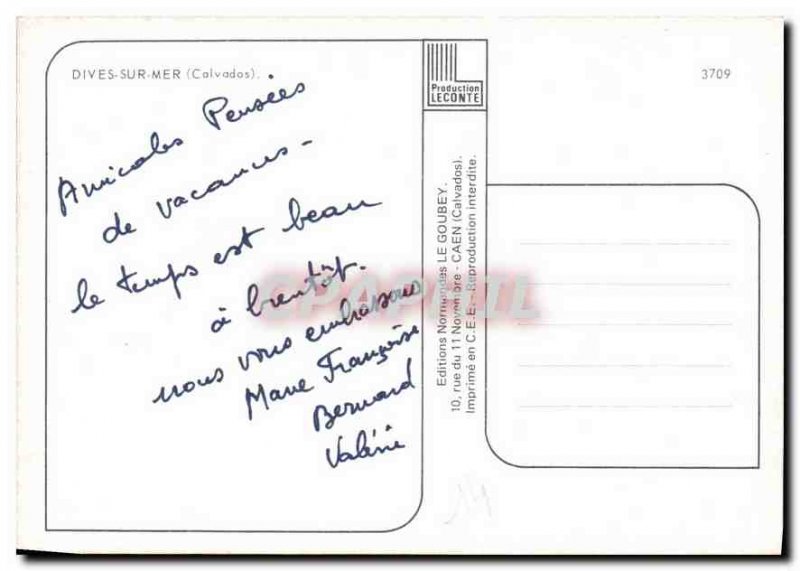 DIVES-SUR-MER (Calvados).
Amicales Pensées
de vacances -
le temps est beau
à bientôt.
nous vous embrassons
Marie Françoise
Bernard
Valérie
Production
LECONTE
3709
Editions Normandes LE GOUBEY.
10, rue du 11 Novembre - CAEN (Calvados).
Imprimé en C.E.E. - Reproduction interdite.
CPAPHIL
14